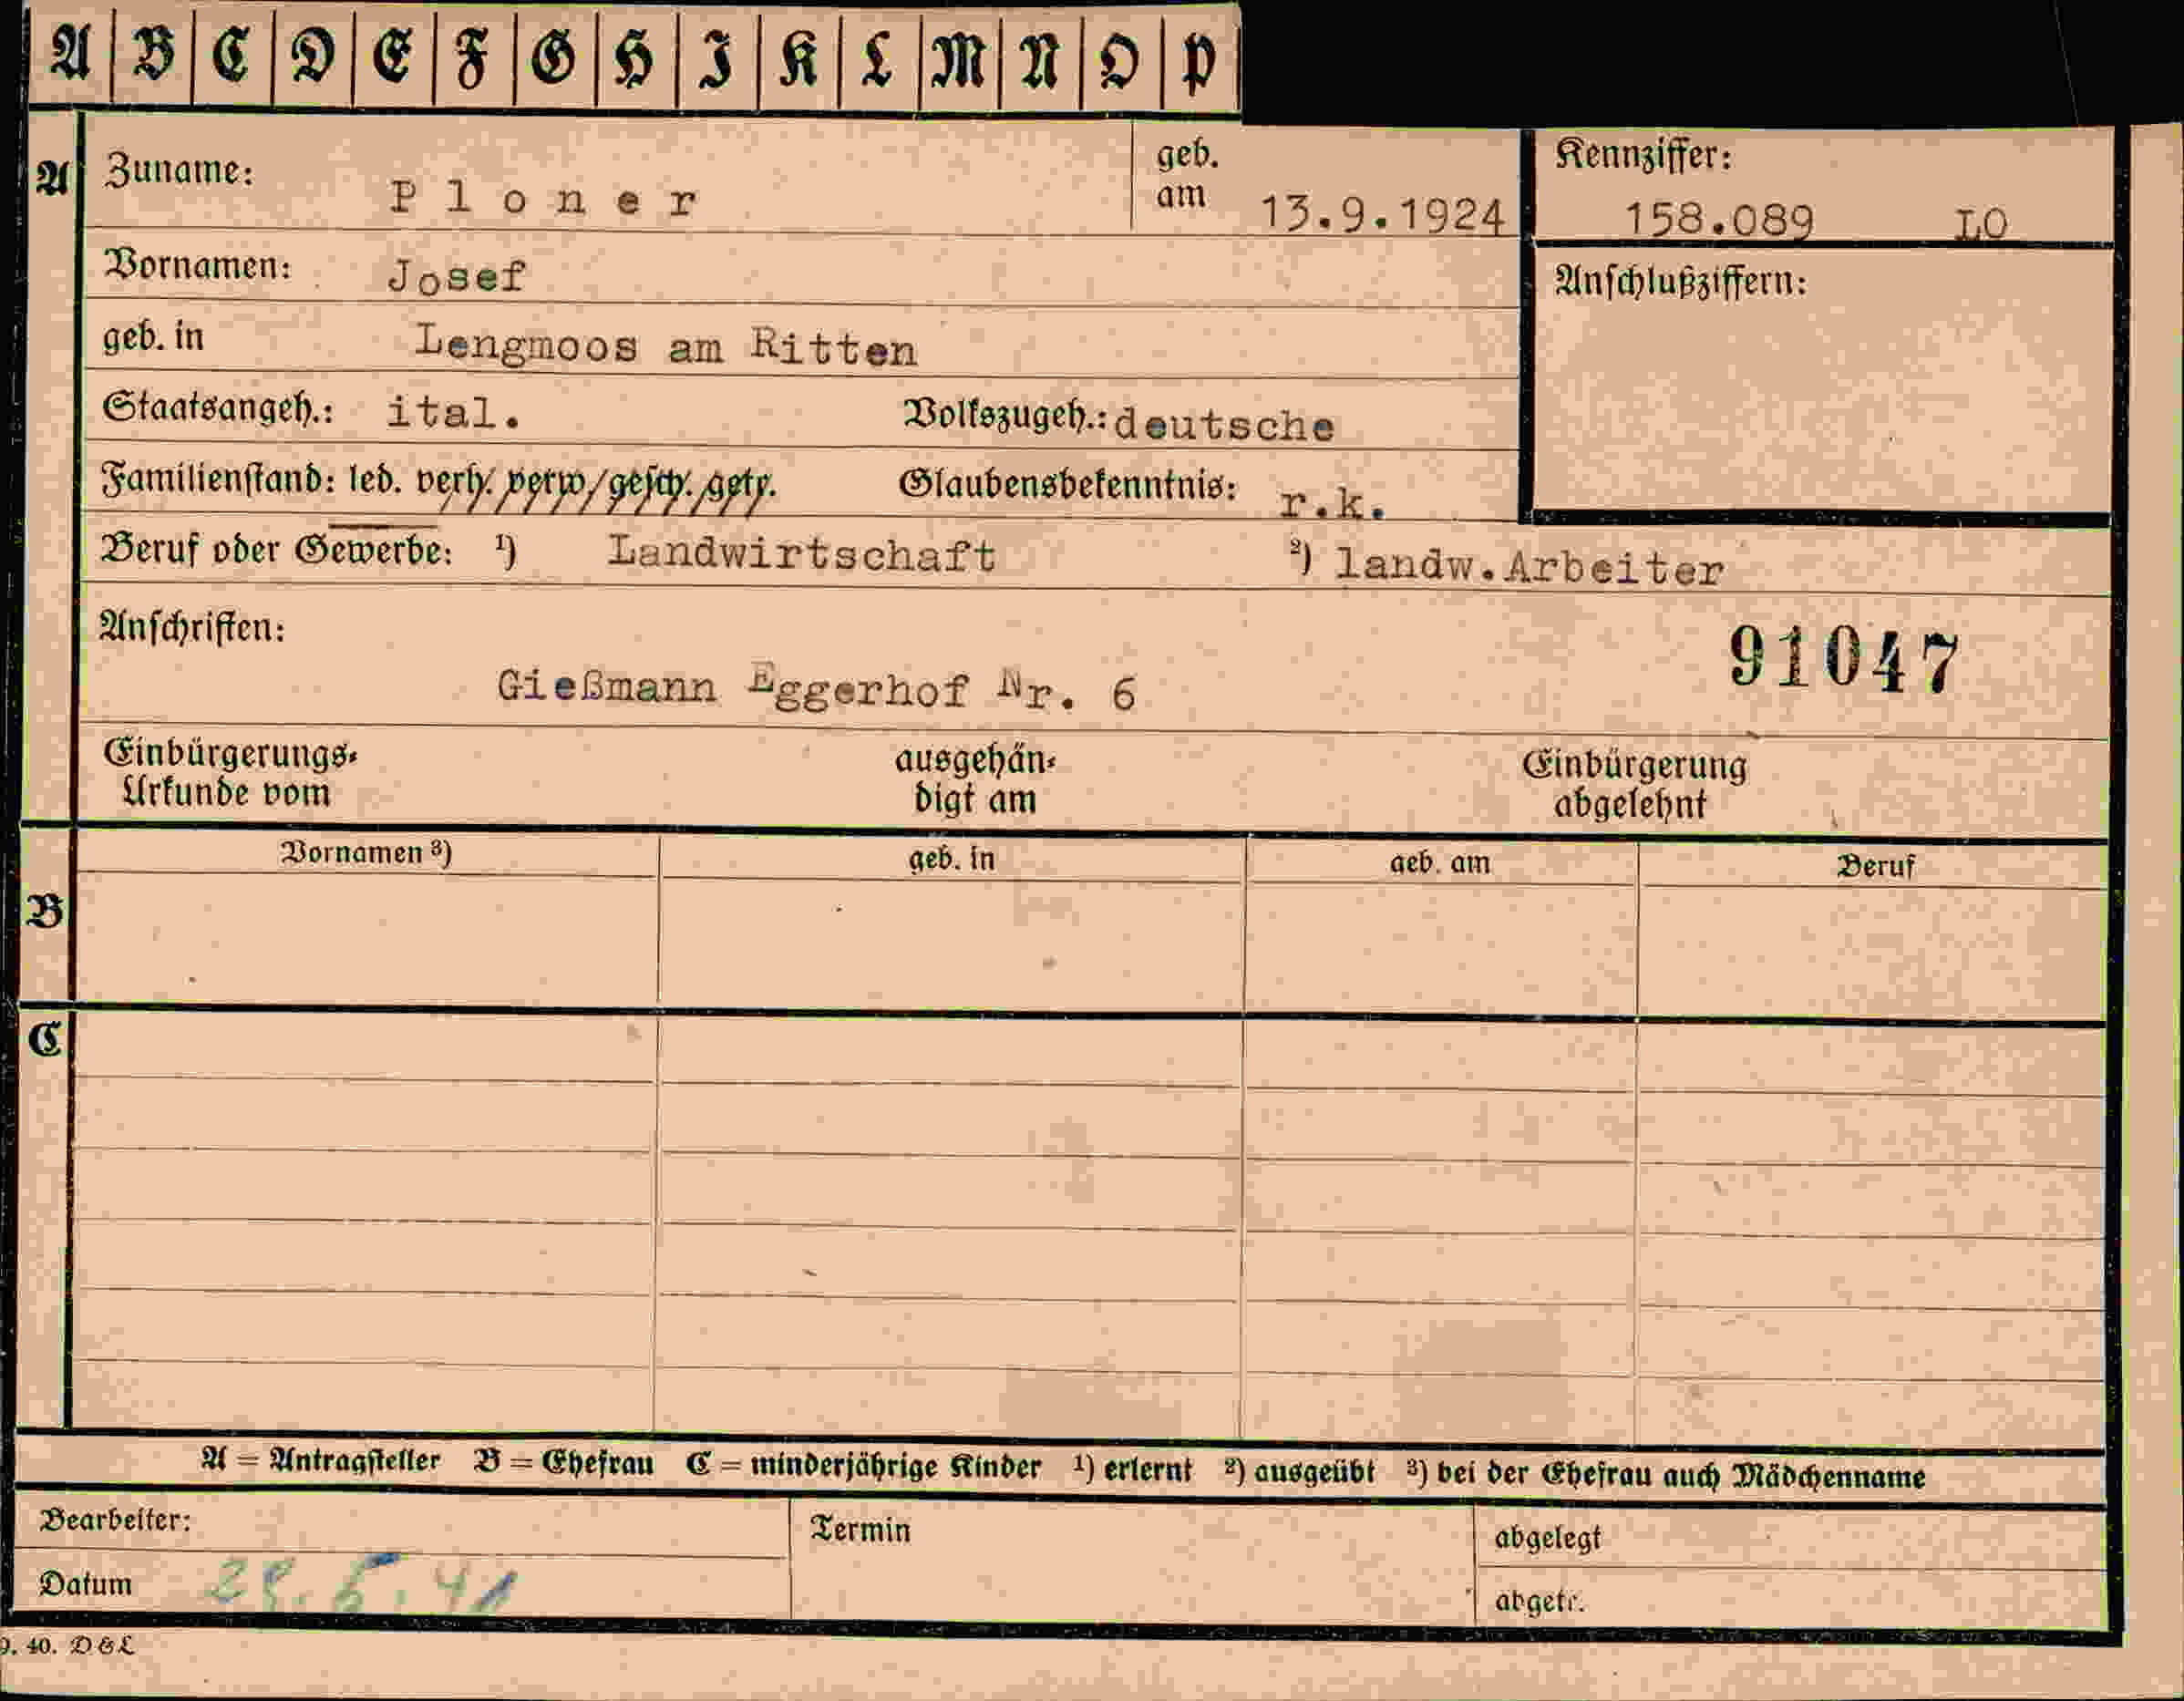 A B C D E F G H I K L M N O P
A Zuname: Ploner geb. am 13.9.1924 Kennziffer: 158.089 LO
Vornamen: Josef Anschlußziffern:
geb. in Lengmoos am Ritten
Staatsangeh.: ital. Volkszugeh.: deutsche
Familienstand: led. verh. verw. gesch. getr. Glaubensbekenntnis: r.k.
Beruf oder Gewerbe: ¹) Landwirtschaft ²) landw.Arbeiter
Anschriften: 91047
Gießmann Eggerhof Nr. 6
Einbürgerungs- ausgehän- Einbürgerung
Urkunde vom digt am abgelehnt
Vornamen ³) geb. in geb. am Beruf
B
C
A = Antragsteller B = Ehefrau C = minderjährige Kinder ¹) erlernt ²) ausgeübt ³) bei der Ehefrau auch Mädchenname
Bearbeiter: Termin abgelegt
Datum 28.5.41 abgetr.
9. 40. D & L